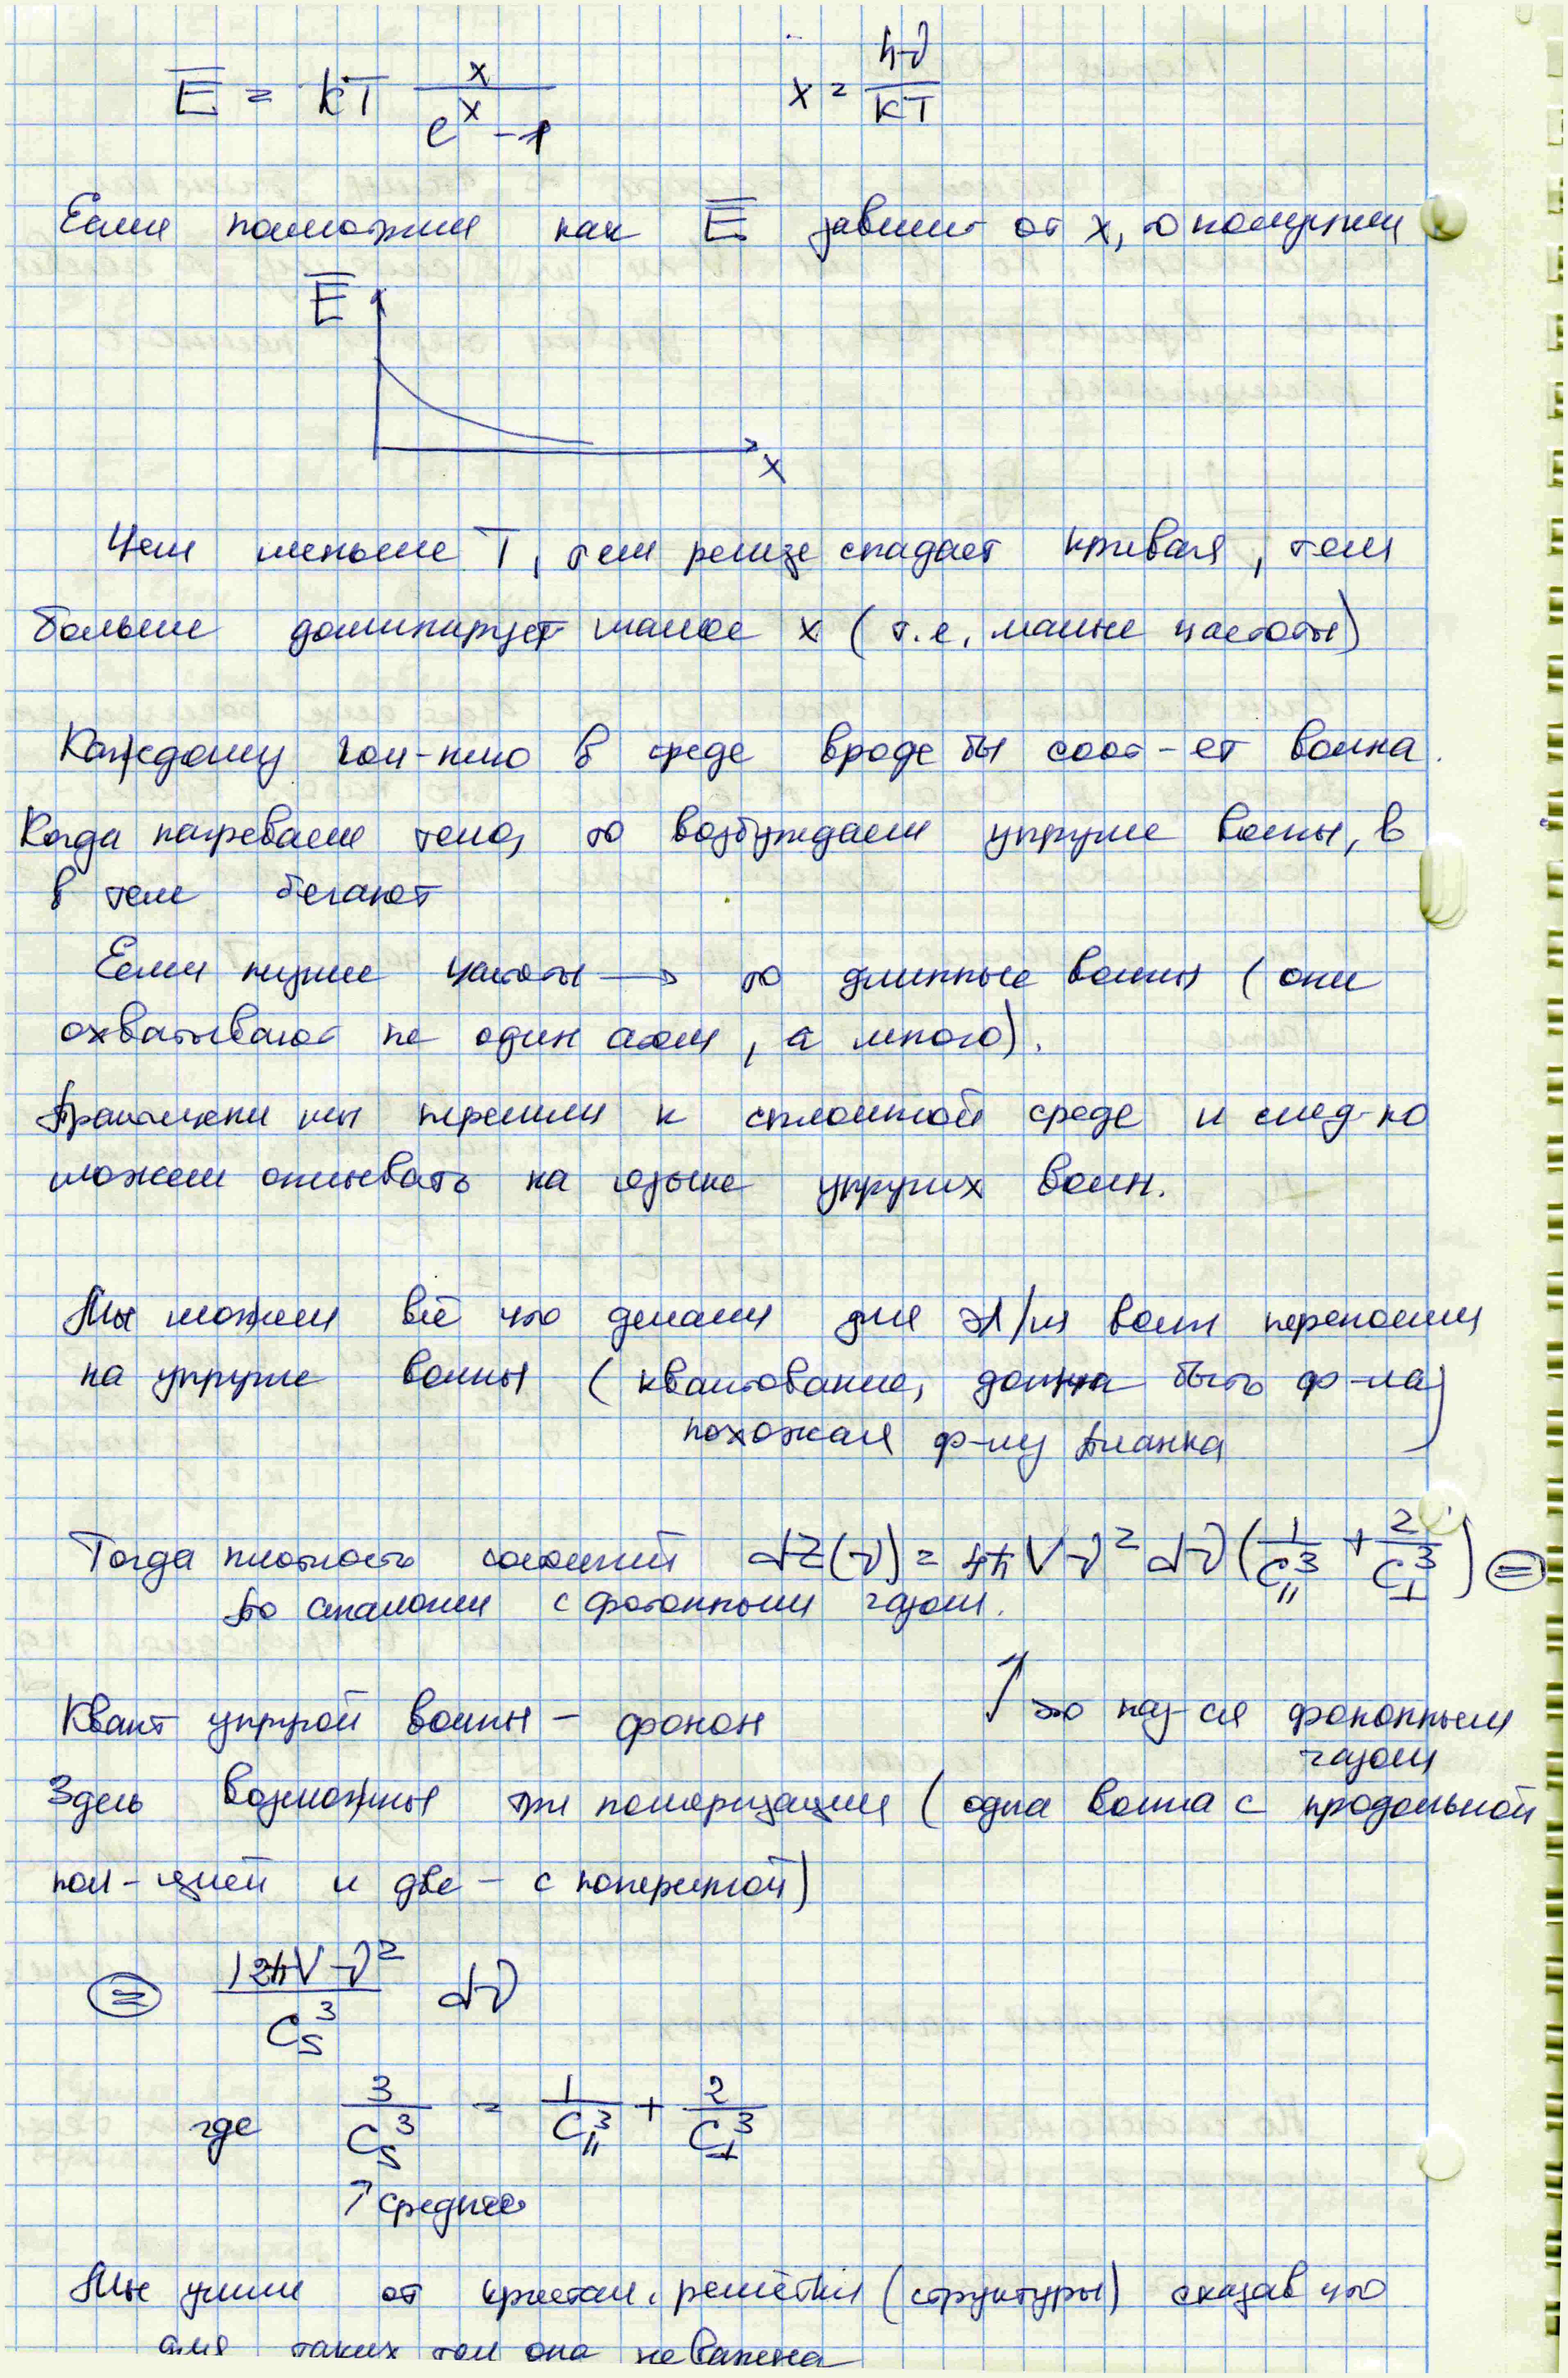 E̅ = kT x/(e^x − 1)    x = hν/kT
Если положим как E̅ зависит от x, то получим
E̅
x
Чем меньше T, тем резче спадает кривая, тем
больше доминирует малое x (т.е. малые частоты)
Каждому кол-нию в среде вроде бы соот-ет волна.
Когда нагреваем тело, то возбуждаем упругие волны, в
в теле бегают
Если низкие частоты → то длинные волны (они
охватывают не один атом, а много).
Фактически мы перешли к сплошной среде и след-но
можем описывать на языке упругих волн.
Мы можем всё что делали для эл/м волн переносим
на упругие волны (квантование, должна быть ф-ла
похожая ф-лу Планка)
Тогда плотность состояний dZ(ν) = 4πVν² dν (1/c∥³ + 2/c⊥³) ⊜
По аналогии с фотонным газом.
Квант упругой волны – фонон    ↑ это наз-ся фононным
газом
Здесь возможны три поляризации (одна волна с продольной
пол-цией и две – с поперечной)
⊜ 12πVν²/c_s³ dν
где 3/c_s³ = 1/c∥³ + 2/c⊥³
↑ среднее
Мы ушли от кристал. решётки (структуры) сказав что
для таких тем она не важена